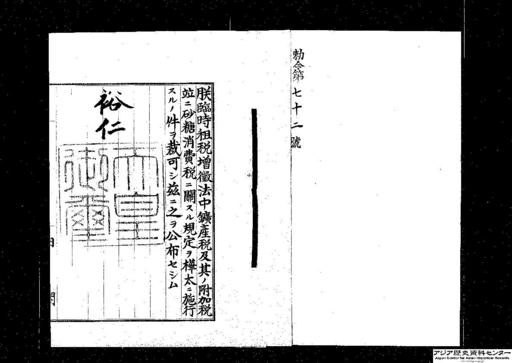 勅令第七十二號
朕臨時租税增徵法中鑛產税及其ノ附加税
竝ニ砂糖消費税ニ關スル規定ヲ樺太ニ施行
スルノ件ヲ裁可シ玆ニ之ヲ公布セシム
裕仁
天皇御璽
アジア歴史資料センター
Japan Center for Asian Historical Records